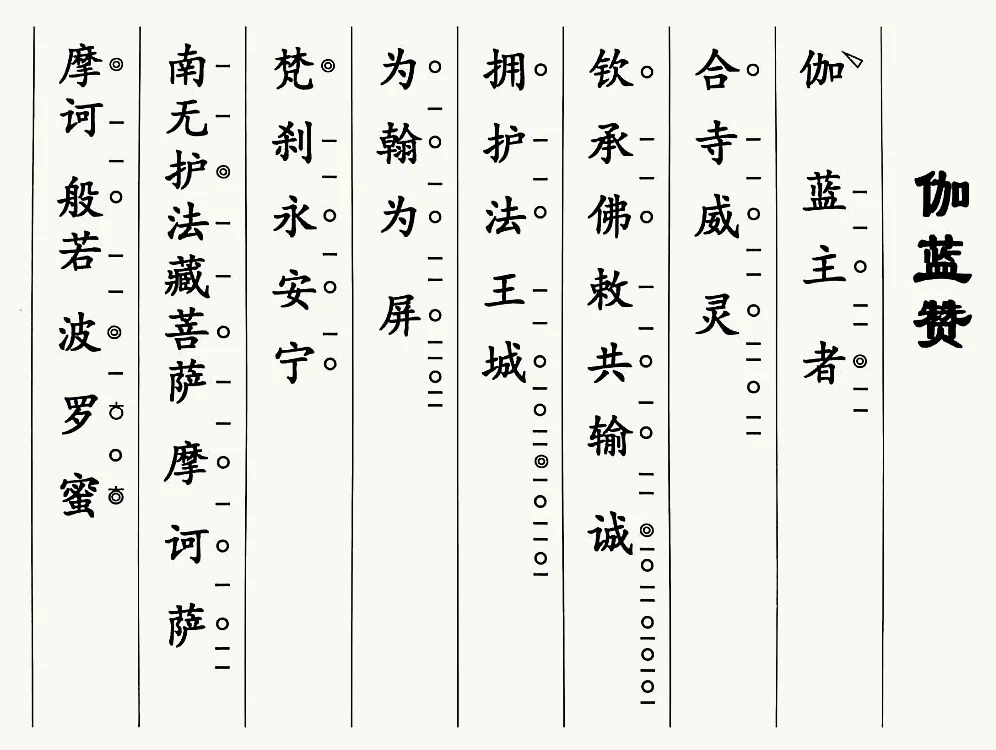 伽蓝赞
伽蓝主者
合寺威灵
钦承佛敕共输诚
拥护法王城
为翰为屏
梵刹永安宁
南无护法藏菩萨摩诃萨
摩诃般若波罗蜜